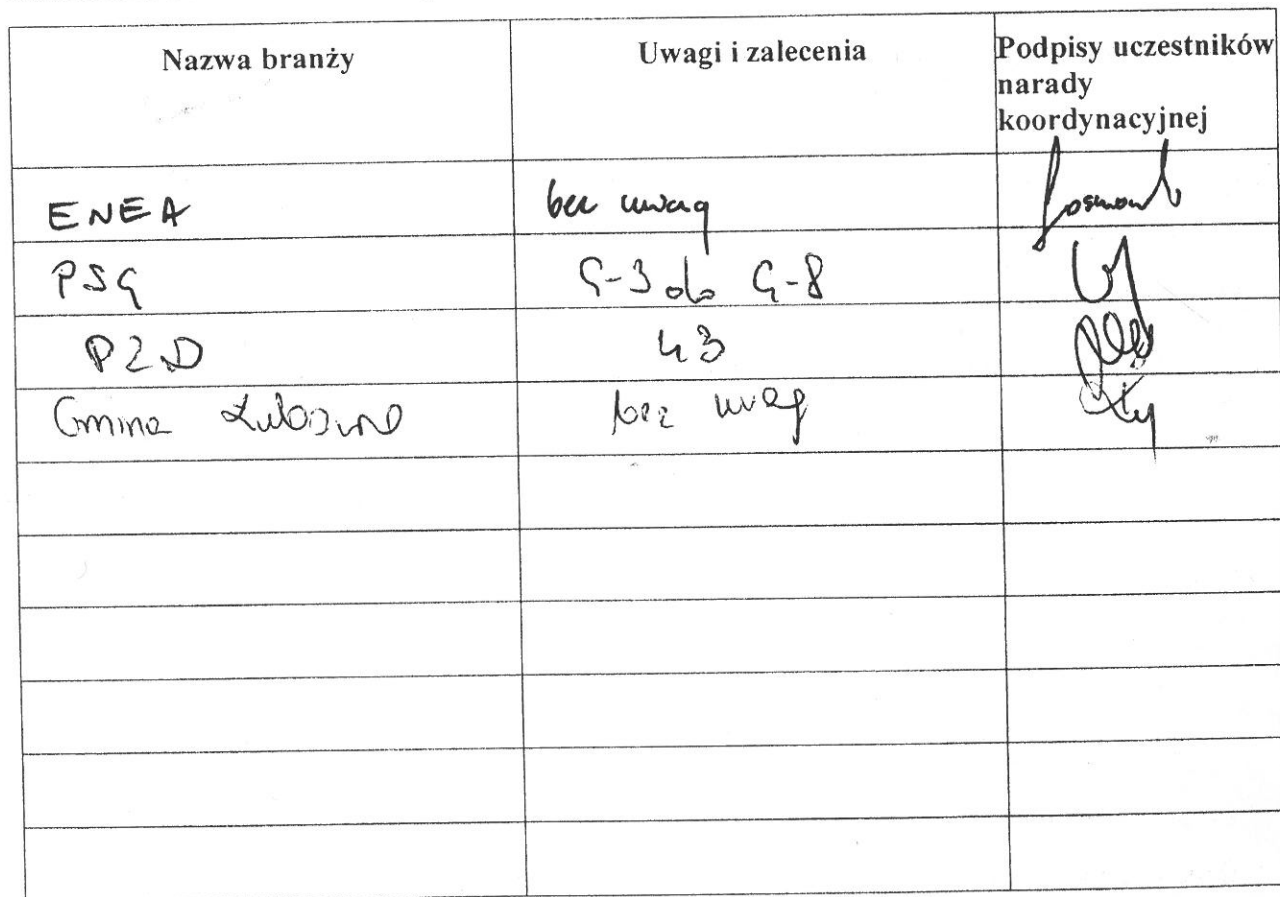 Nazwa branży Uwagi i zalecenia Podpisy uczestników
narady
koordynacyjnej
ENEA bez uwag
PSG G-3 do G-8
PZD 43
Gmina bez uwag